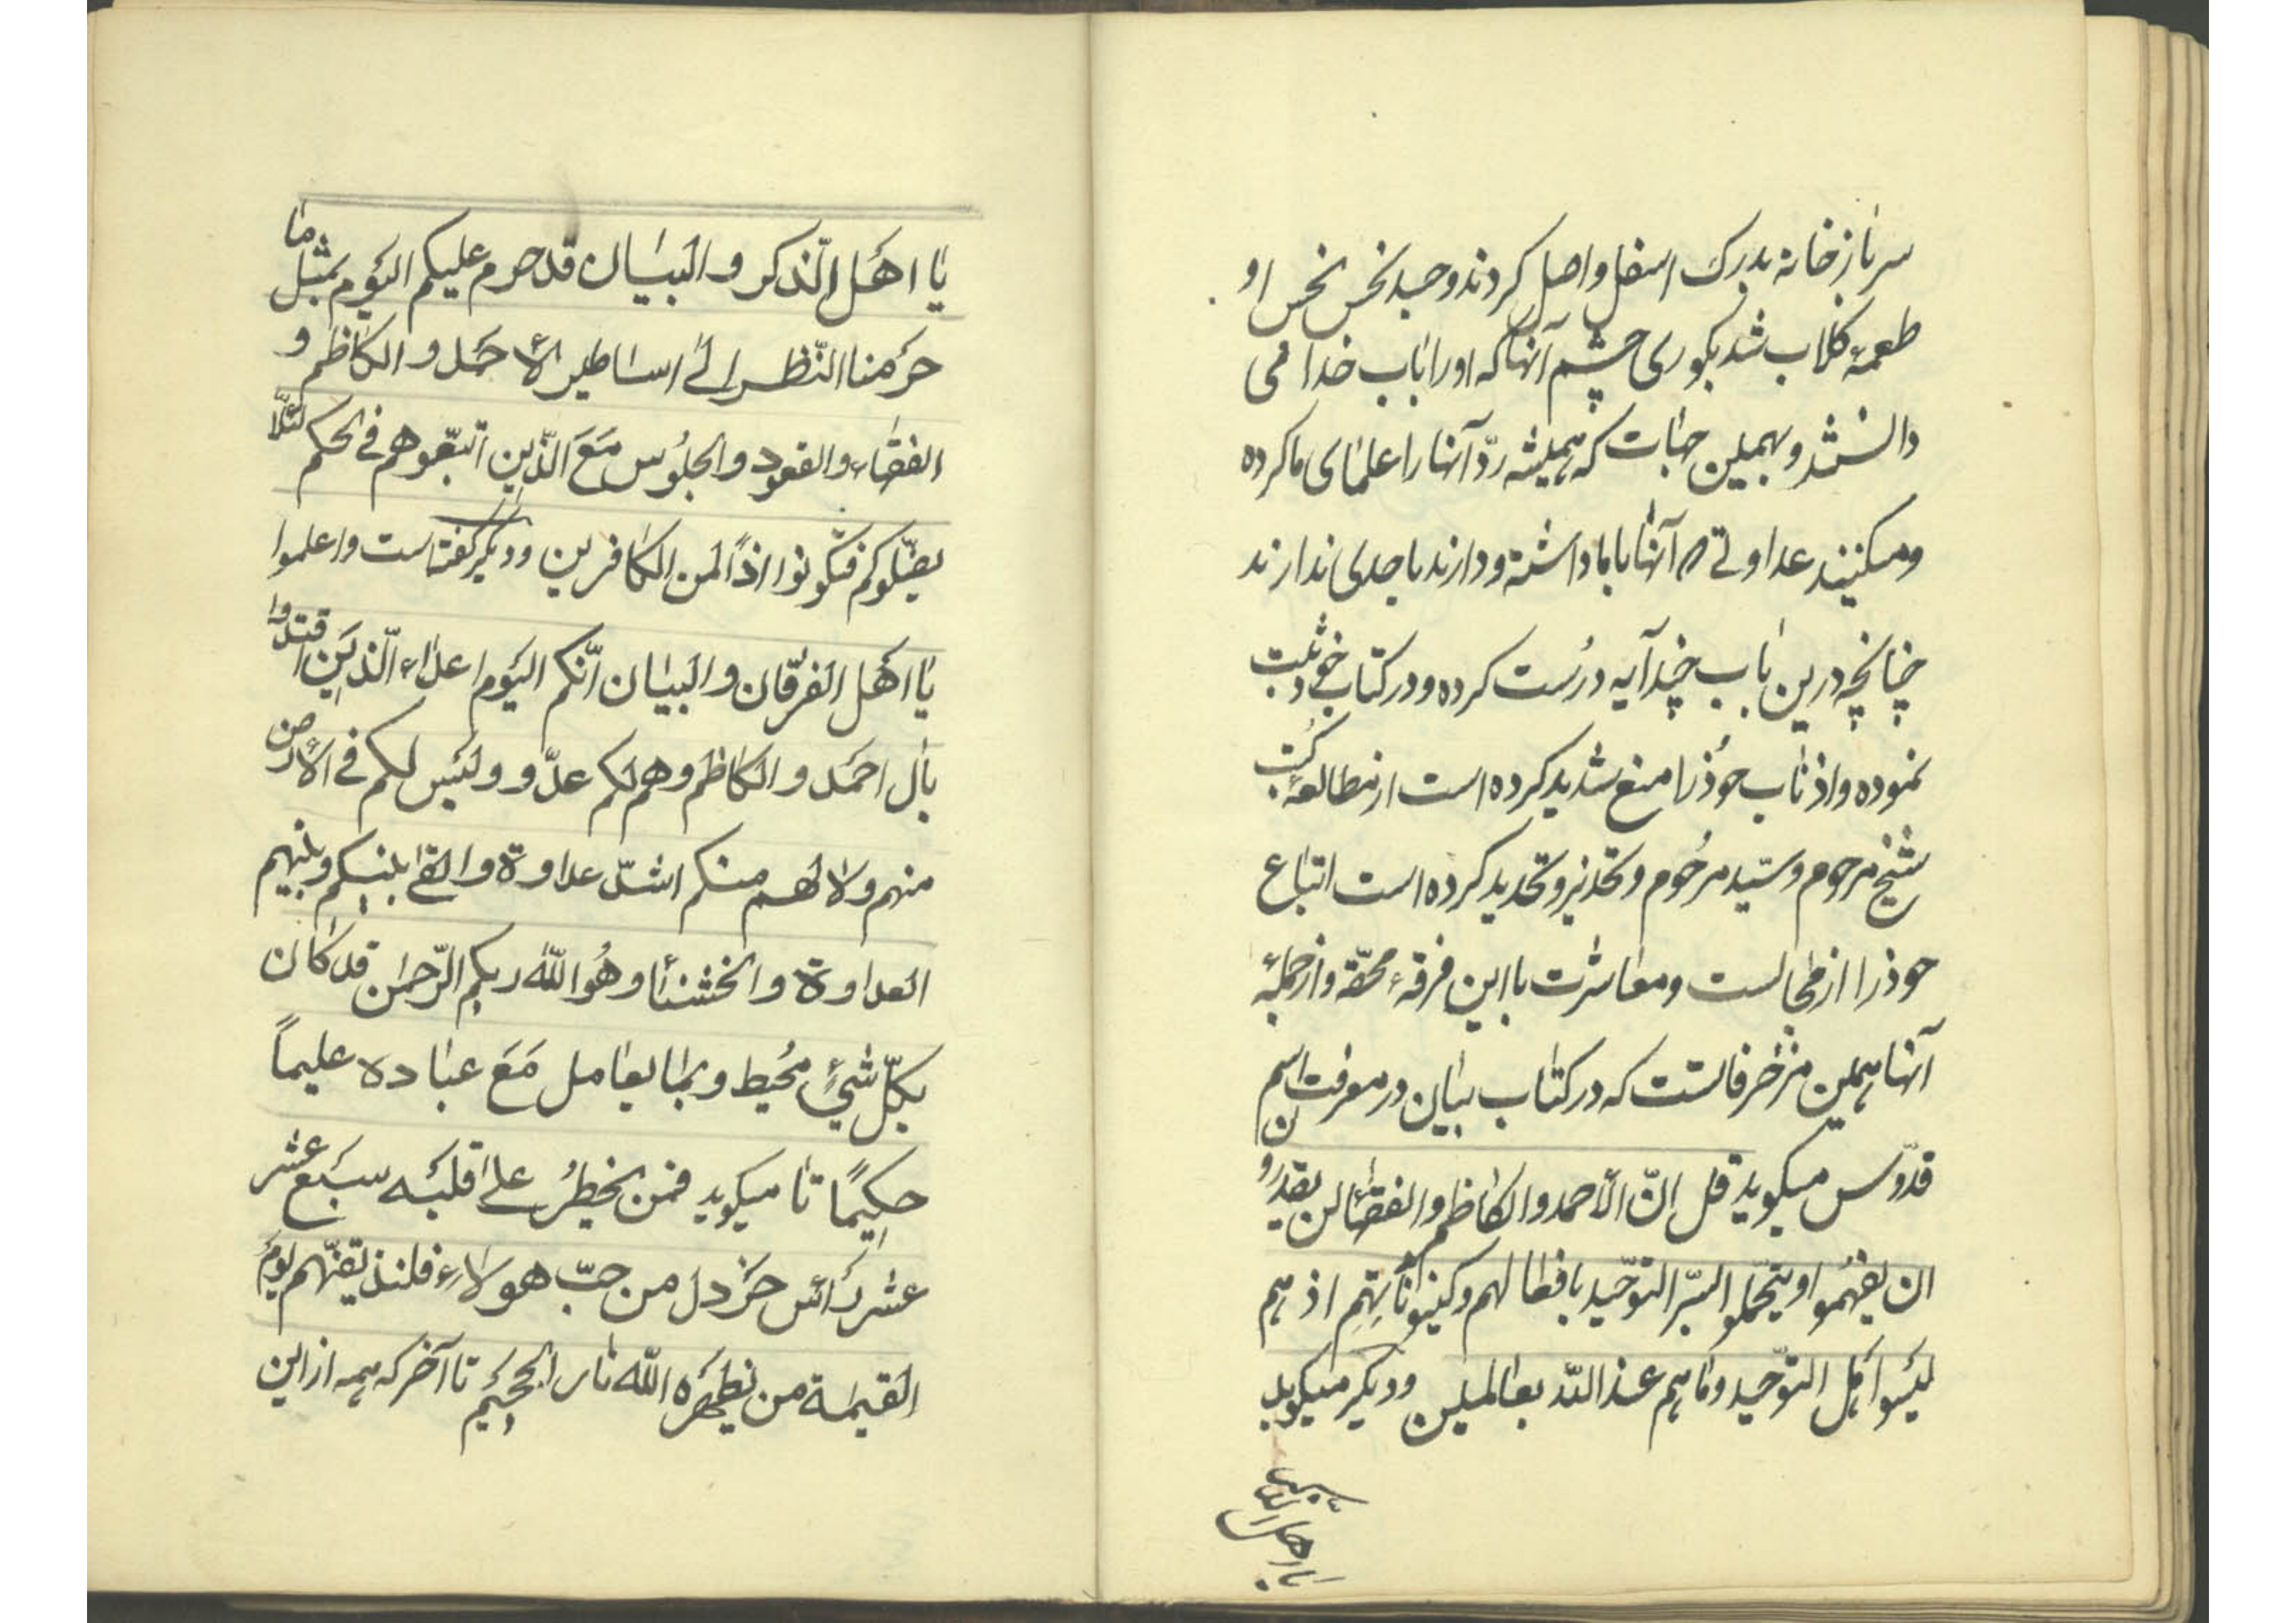 سرباز خانه بدرک اسفل واصل کردند و جسد نحس نجس او
طعمهٔ کلاب شد بکوری چشم آنها که او را باب خدا می
دانستند و بهمین جهات که همیشه ردّ آنها را علمای ما کرده
و میکنند عداوتی که آنها با ما داشته و دارند با احدی ندارند
چنانچه درین باب چند آیه درست کرده و در کتاب خود ثبت
نموده و اذناب خود را منع شدید کرده است از مطالعهٔ کتب
شیخ مرحوم و سیّد مرحوم و تحذیر و تحدید کرده است اتباع
خود را از مجالست و معاشرت با این فرقهٔ محقّه و از جملهٔ
آنها همین مزخرفاتست که در کتاب بیان در معرفت اسم
قدّوس میگوید قل انّ الأحمد والکاظم والفقهآء لن یقدرون
ان یفهموا او یتحمّلوا السّر التوحید بافعالهم وکینوناتهم اذ هم
لیسوا اهل التوحید وما هم عند الله بعالمین و دیگر میگوید
یا اهل
یا اهل الذکر والبیان قد حرم علیکم الیوم بمثل ما
حرمنا النّظر الی اساطیر الأحمد والکاظم و
الفقهاء والقعود والجلوس مع الّذین اتبعّوهم فی الحکم لئلا
یضلّوکم فتکونوا اذاً لمن الکافرین و دیگر گفته است واعلموا
یا اهل الفرقان والبیان انّکم الیوم اعداء الّذین اقتدوا
بال احمد والکاظم وهم لکم عدّو ولیس لکم فی الأرض
منهم ولا لهم منکم اشدّ عداوة والقی بینکم وبینهم
العداوة والخشنا وهو الله ربکم الرّحمن قد کان
بکلّ شیءٍ محیط وبما یعامل مع عباده علیماً
حکیماً تا میگوید فمن یخطر علی قلبه سبع عشر
عشر رأس خردل من حبّ هولاء فلنذیقنّهم یوم
القیمة من یظهره الله نار الجحیم تا آخر که همه از این